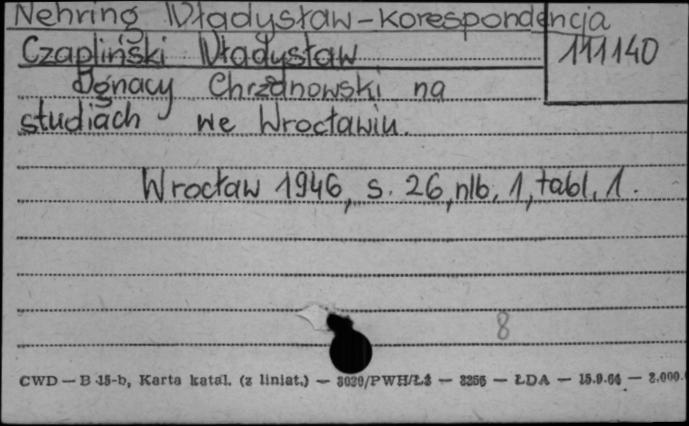 Nehring Władysław - korespondencja
Czapliński Władysław
111140
Ignacy Chrzanowski na
studiach we Wrocławiu.
Wrocław 1946, s. 26, nlb. 1, tabl. 1.
8
CWD — B 15-b, Karta katal. (z liniat.) — 3029/PWH/Ł3 — 3256 — ŁDA — 15.9.66 —